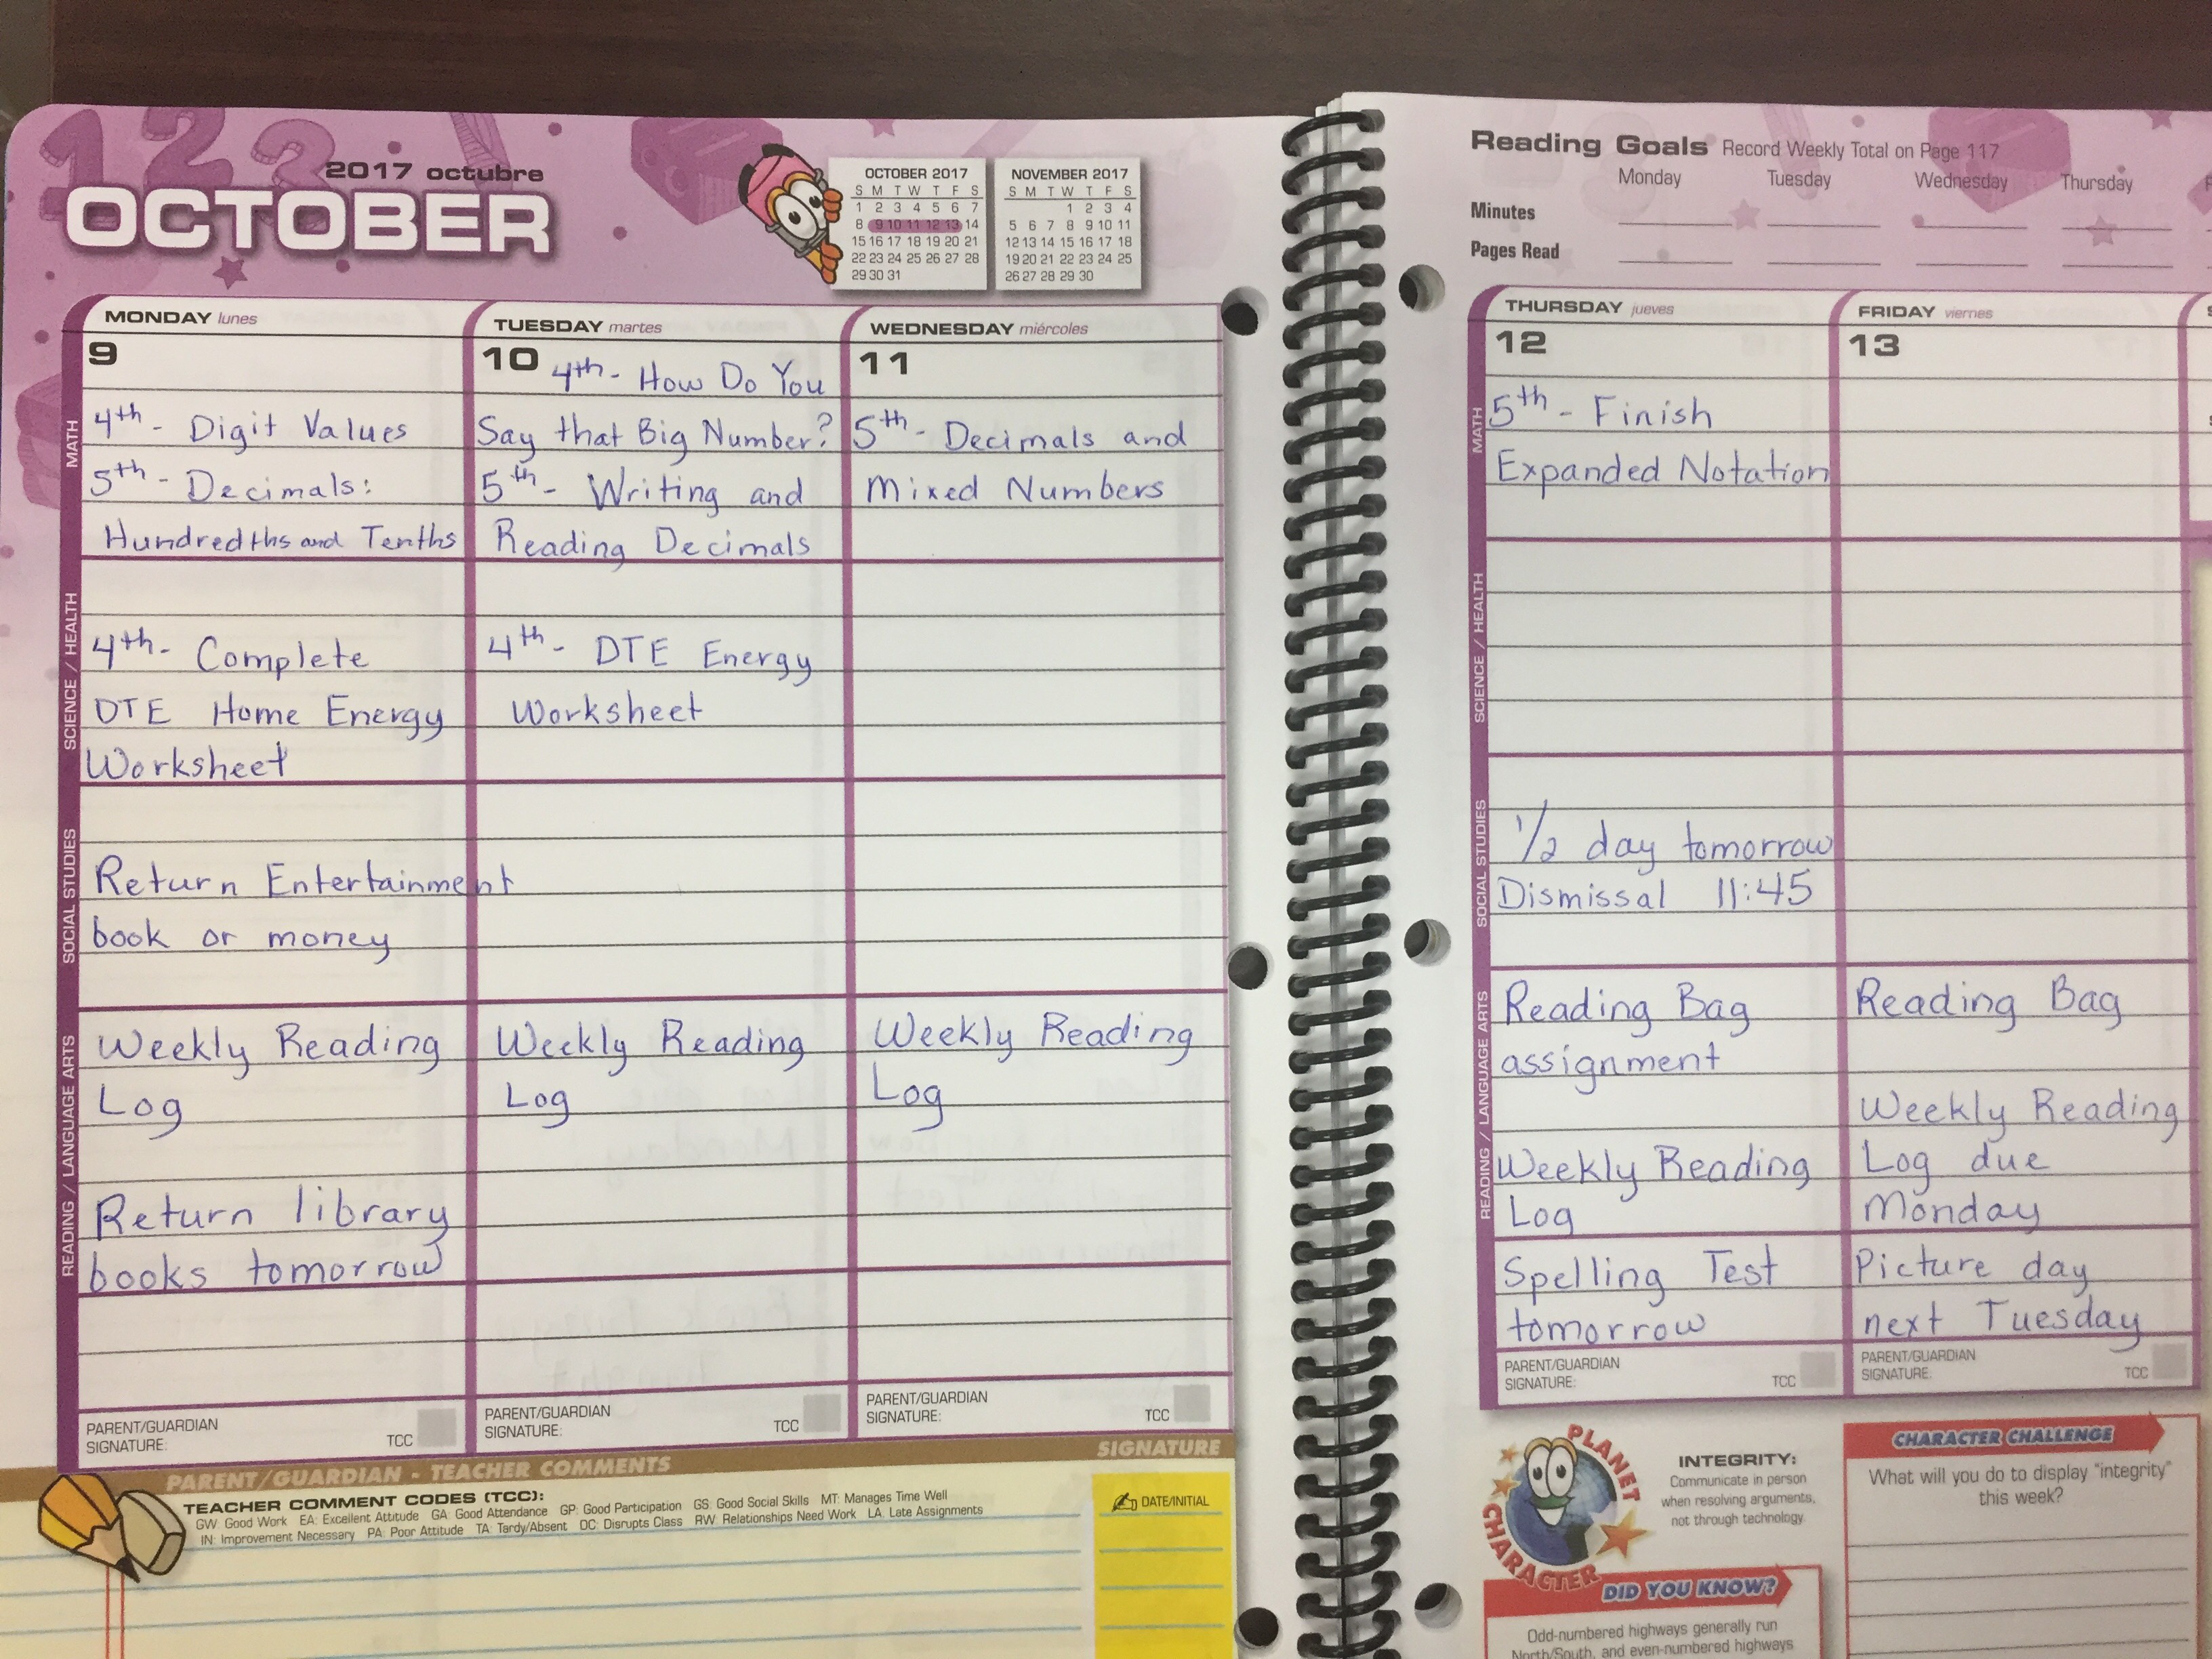 2017 octubre
OCTOBER
OCTOBER 2017
S M T W T F S
1 2 3 4 5 6 7
8 9 10 11 12 13 14
15 16 17 18 19 20 21
22 23 24 25 26 27 28
29 30 31
NOVEMBER 2017
S M T W T F S
1 2 3 4
5 6 7 8 9 10 11
12 13 14 15 16 17 18
19 20 21 22 23 24 25
26 27 28 29 30
MONDAY lunes
9
MATH
4th - Digit Values
5th - Decimals:
Hundredths and Tenths
SCIENCE / HEALTH
4th - Complete
DTE Home Energy
Worksheet
SOCIAL STUDIES
Return Entertainment
book or money
READING / LANGUAGE ARTS
Weekly Reading
Log
Return library
books tomorrow
PARENT/GUARDIAN
SIGNATURE:
TCC
TUESDAY martes
10
4th - How Do You
Say that Big Number?
5th - Writing and
Reading Decimals
4th - DTE Energy
Worksheet
Weekly Reading
Log
PARENT/GUARDIAN
SIGNATURE:
TCC
WEDNESDAY miércoles
11
5th - Decimals and
Mixed Numbers
Weekly Reading
Log
PARENT/GUARDIAN
SIGNATURE:
TCC
PARENT/GUARDIAN - TEACHER COMMENTS
SIGNATURE
TEACHER COMMENT CODES (TCC):
GW: Good Work EA: Excellent Attitude GA: Good Attendance GP: Good Participation GS: Good Social Skills MT: Manages Time Well
IN: Improvement Necessary PA: Poor Attitude TA: Tardy/Absent DC: Disrupts Class RW: Relationships Need Work LA: Late Assignments
DATE/INITIAL
Reading Goals Record Weekly Total on Page 117
Monday Tuesday Wednesday Thursday F
Minutes
Pages Read
THURSDAY jueves
12
MATH
5th - Finish
Expanded Notation
SCIENCE / HEALTH
SOCIAL STUDIES
1/2 day tomorrow
Dismissal 11:45
READING / LANGUAGE ARTS
Reading Bag
assignment
Weekly Reading
Log
Spelling Test
tomorrow
PARENT/GUARDIAN
SIGNATURE:
TCC
FRIDAY viernes
13
Reading Bag
Weekly Reading
Log due
Monday
Picture day
next Tuesday
PARENT/GUARDIAN
SIGNATURE:
TCC
PLANET
CHARACTER
INTEGRITY:
Communicate in person
when resolving arguments,
not through technology.
DID YOU KNOW?
Odd-numbered highways generally run
North/South, and even-numbered highways
CHARACTER CHALLENGE
What will you do to display "integrity"
this week?